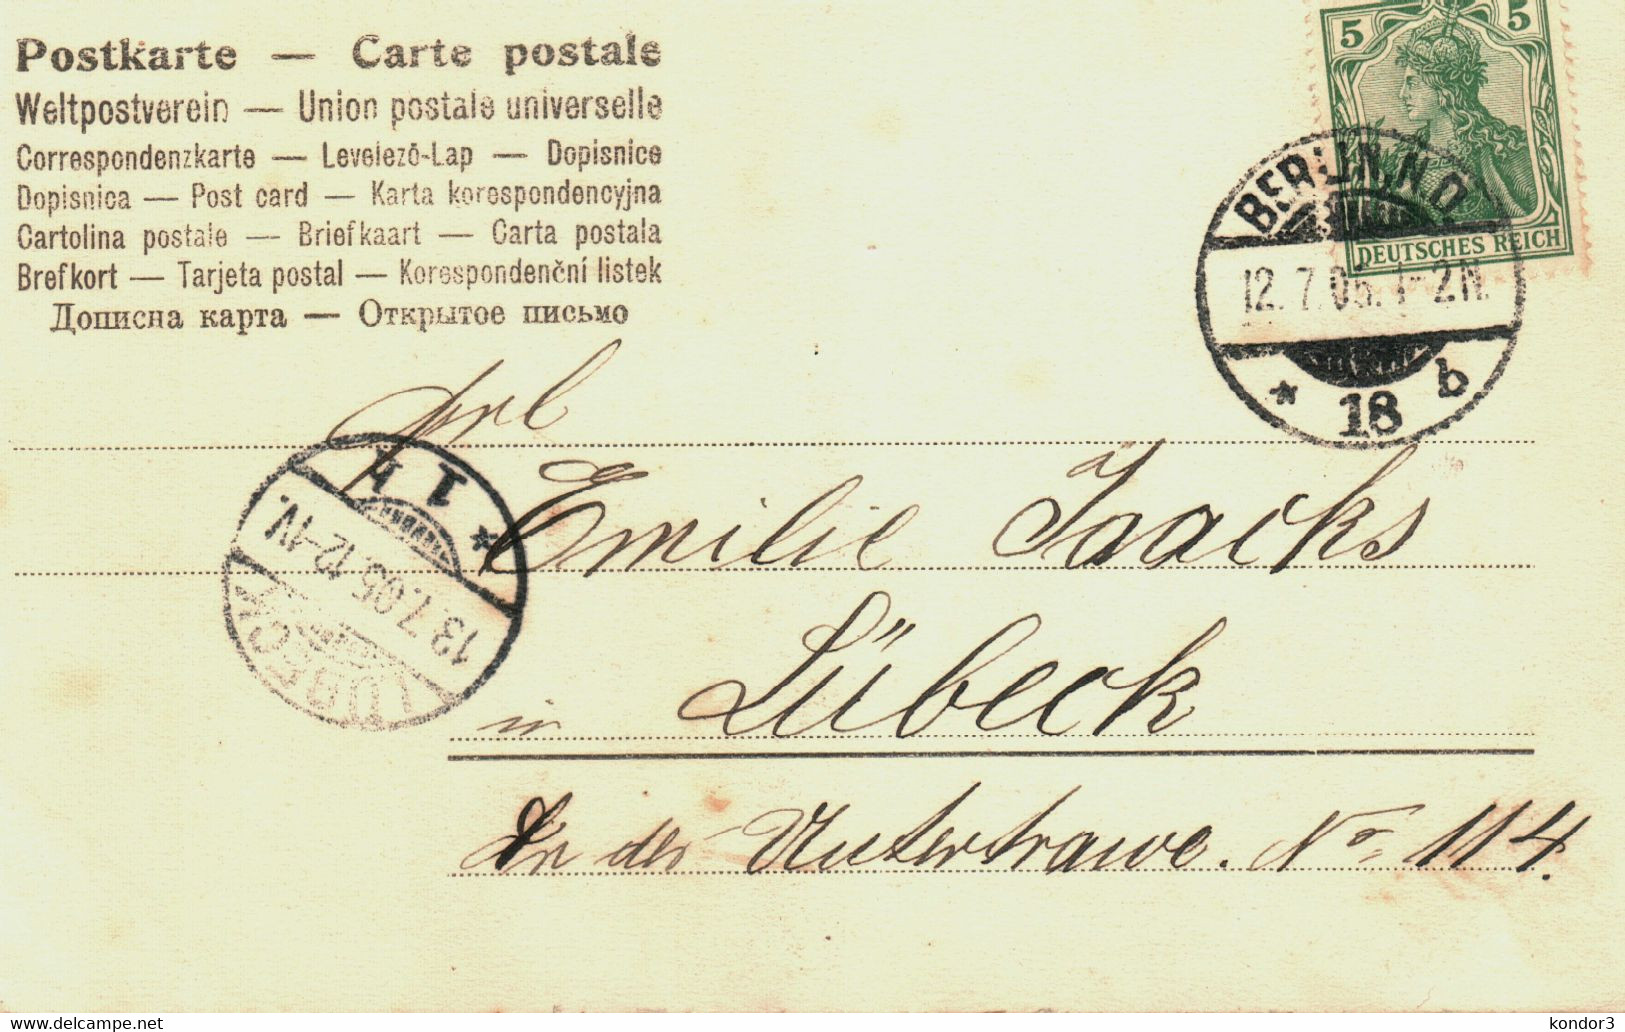 Postkarte — Carte postale
Weltpostverein — Union postale universelle
Correspondenzkarte — Levelező-Lap — Dopisnice
Dopisnica — Post card — Karta korespondencyjna
Cartolina postale — Briefkaart — Carta postala
Brefkort — Tarjeta postal — Korespondenční listek
Дописна карта — Открытое письмо
5 5
DEUTSCHES REICH
BERLIN, N.O.
12.7.05. 1-2N.
* 18 b
Frl
Emilie Isaacks
in Lübeck
An der Untertrawe. No 114.
LÜBECK
13.7.05. 12-1N.
* 1
www.delcampe.net
kondor3